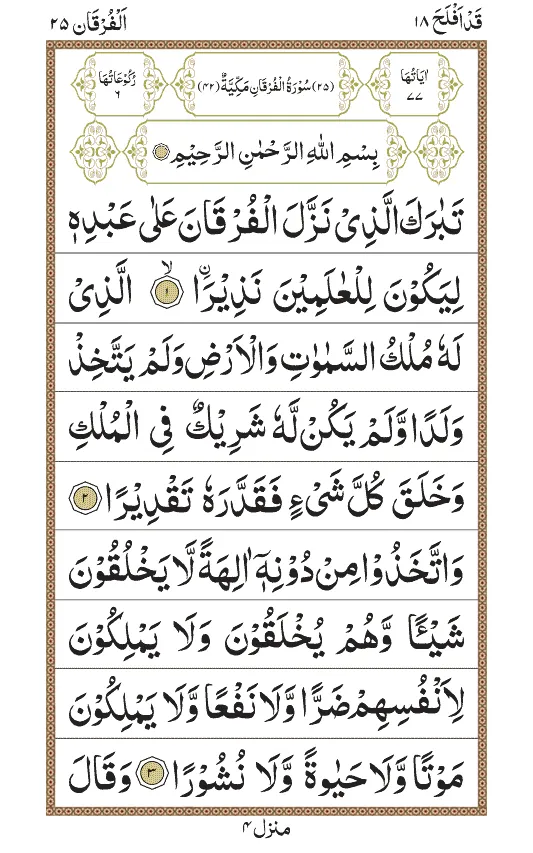 قَدْ اَفْلَحَ ۱۸
اَلْفُرْقَان ۲۵
اٰیَاتُهَا ۷۷
(۲۵) سُوْرَةُ الْفُرْقَانِ مَكِّیَّةٌ (۴۲)
رُكُوْعَاتُهَا ۶
بِسْمِ اللّٰهِ الرَّحْمٰنِ الرَّحِیْمِ
تَبٰرَكَ الَّذِیْ نَزَّلَ الْفُرْقَانَ عَلٰی عَبْدِهٖ
لِیَكُوْنَ لِلْعٰلَمِیْنَ نَذِیْرَاۨ ۙ﴿۱﴾ الَّذِیْ
لَهٗ مُلْكُ السَّمٰوٰتِ وَالْاَرْضِ وَلَمْ یَتَّخِذْ
وَلَدًا وَّلَمْ یَكُنْ لَّهٗ شَرِیْكٌ فِی الْمُلْكِ
وَخَلَقَ كُلَّ شَیْءٍ فَقَدَّرَهٗ تَقْدِیْرًا ﴿۲﴾
وَاتَّخَذُوْا مِنْ دُوْنِهٖۤ اٰلِهَةً لَّا یَخْلُقُوْنَ
شَیْـًٔا وَّهُمْ یُخْلَقُوْنَ وَلَا یَمْلِكُوْنَ
لِاَنْفُسِهِمْ ضَرًّا وَّلَا نَفْعًا وَّلَا یَمْلِكُوْنَ
مَوْتًا وَّلَا حَیٰوةً وَّلَا نُشُوْرًا ﴿۳﴾ وَقَالَ
منزل ۴